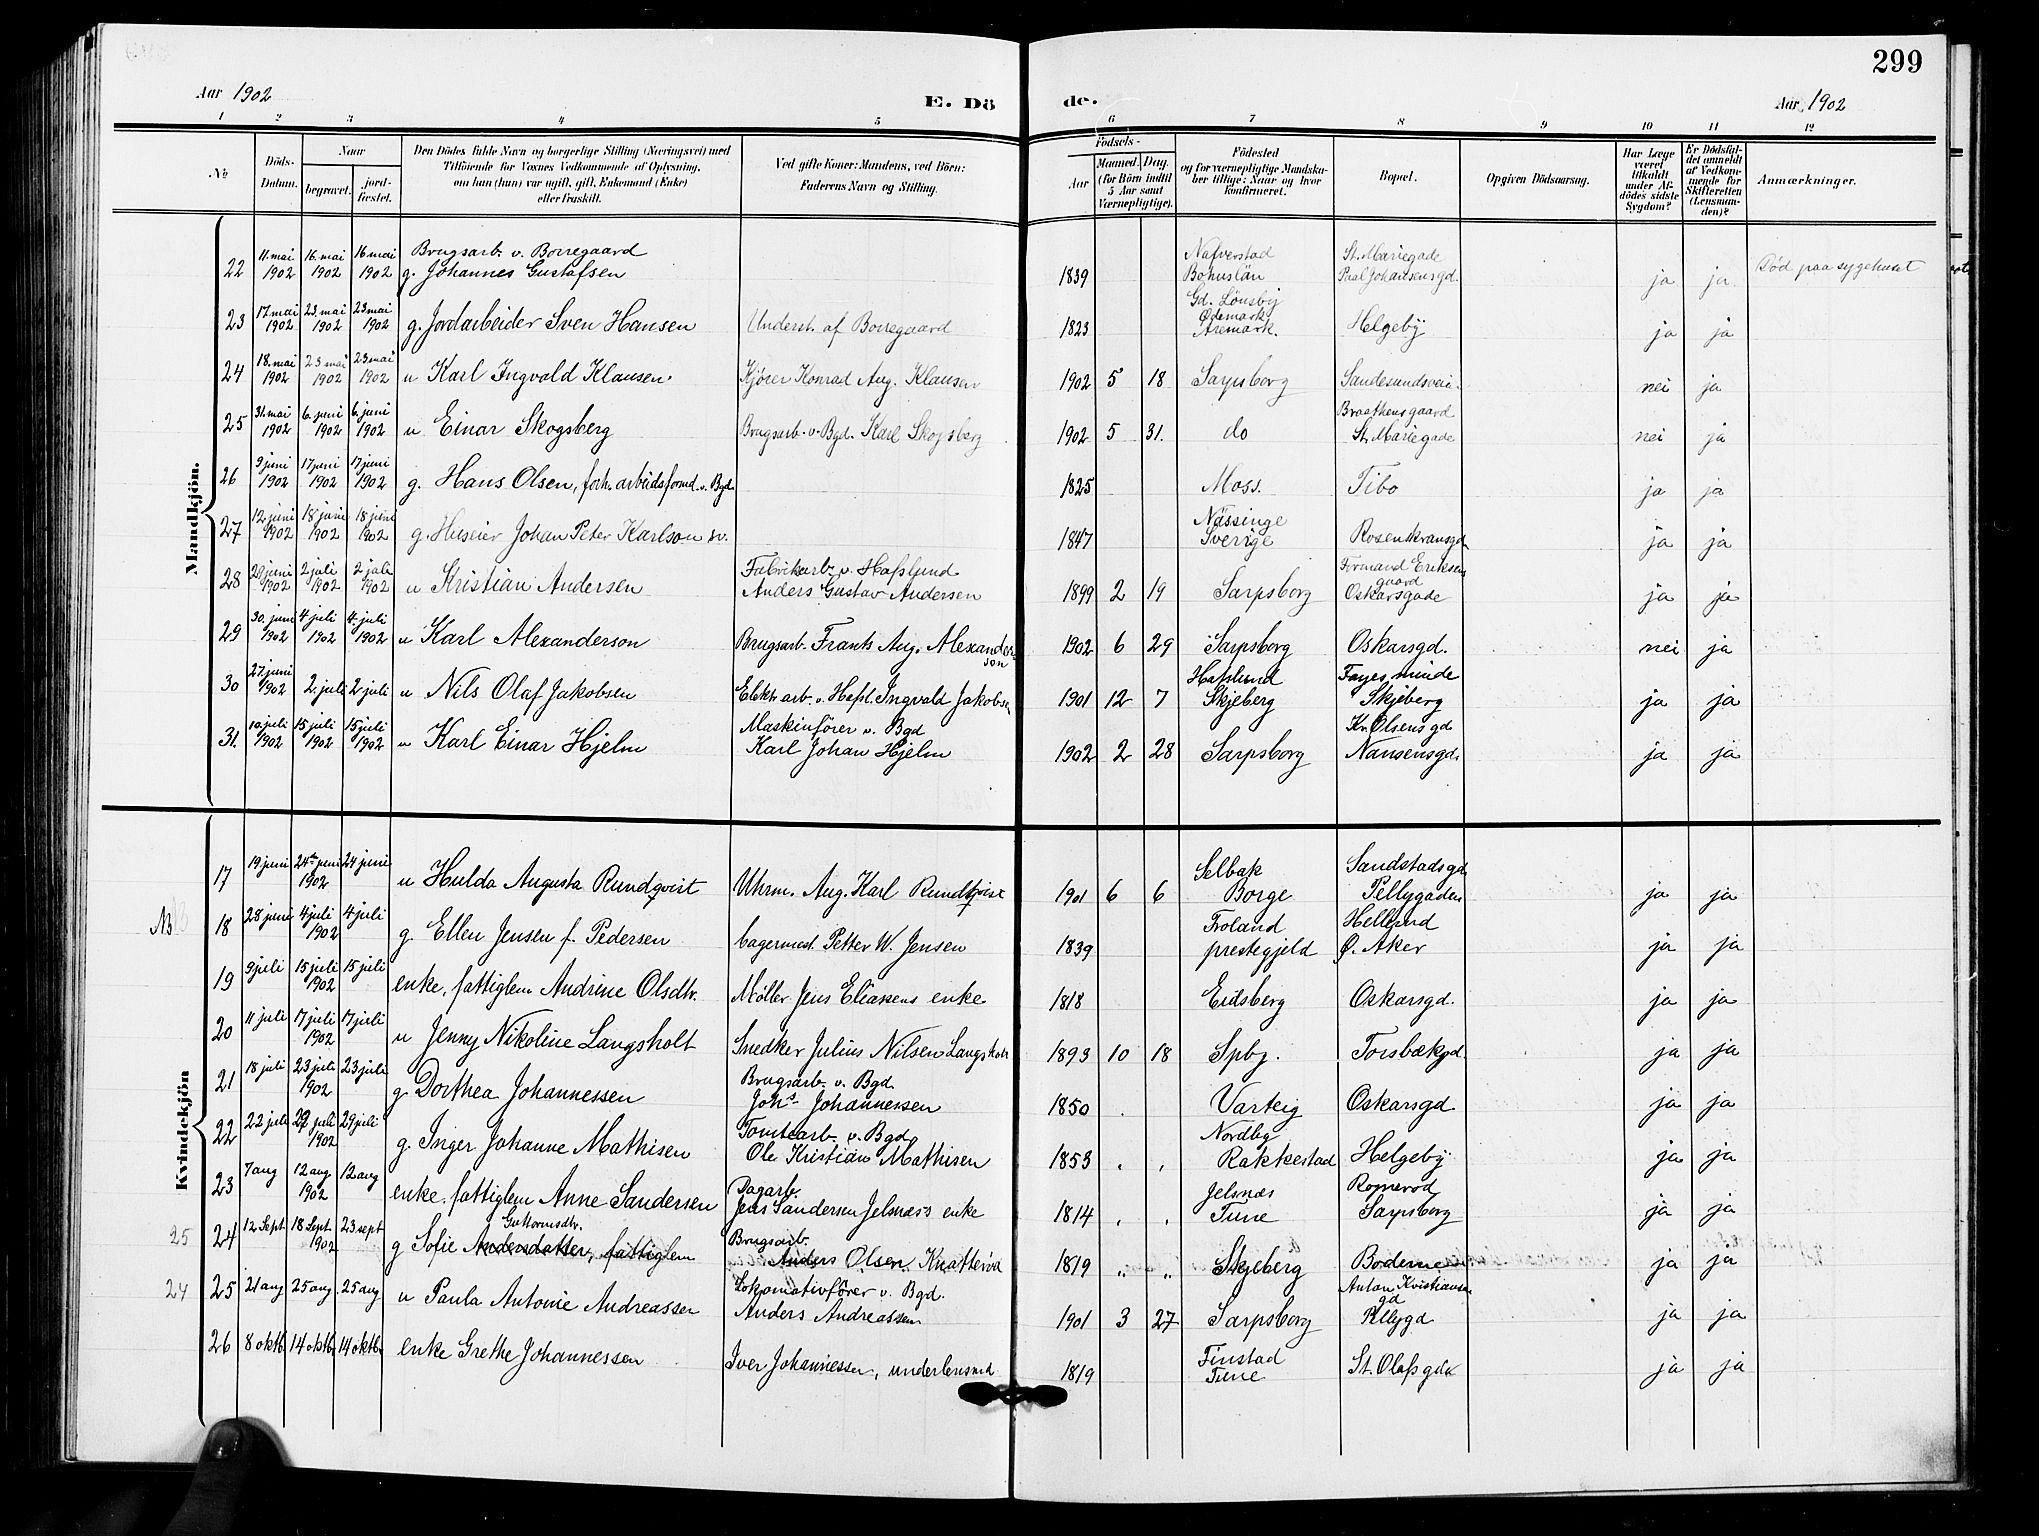 299
Aar 1902 E. Dö de. Aar 1902
1 2 3 4 5 6 7 8 9 10 11 12
№ Döds-Datum. Naar begravet. jord-fæstet. Den Dödes fulde Navn og borgerlige Stilling (Næringsvei) med Tilföiende for Voxnes Vedkommende af Oplysning, om han (hun) var ugift, gift, Enkemand (Enke) eller fraskilt. Ved gifte Koner: Mandens, ved Börn: Faderens Navn og Stilling. Födsels- Aar Maaned. Dag. (for Börn indtil 5 Aar samt Værnepligtige). Födested og for værnepligtige Mandska-ber tillige: Naar og hvor konfirmeret. Bopæl. Opgiven Dödsaarsag. Har Læge været tilkaldt under Af-dödes sidste Sygdom? Er Dödsfal-det anmeldt af Vedkom-mende for Skifteretten (Lensman-den)? Anmærkninger.
Mandkjön.
22 11. mai 1902 16. mai 1902 16 mai 1902 Brugsarb. v. Borregaard g. Johannes Gustafsen 1839 Nafverstad Bohuslän St. Mariegade Paal Johansensgd. ja ja Död paa sygehuset
23 17. mai 1902 23. mai 1902 23 mai 1902 g. Jordarbeider Sven Hansen Underst. af Borregaard 1823 Gd. Lönsby Ødemark Aremark. Helgeby ja ja
24 18. mai 1902 23 mai 1902 23 mai 1902 u Karl Ingvald Klausen. Kjører Konrad Aug. Klausen 1902 5 18 Sarpsborg Sandesundsveie. nei ja
25 31. mai 1902 6. juni 1902 6. juni 1902 u Einar Skogsberg Brugsarb. v. Bgd. Karl Skogsberg 1902 5 31. do Braathensgaard St. Mariegade nei ja
26 9 juni 1902 17 juni 1902 17 juni 1902 g. Hans Olsen, forh. arbeidsformd. v. Bgd. 1825 Moss. Tibo ja ja
27 12 juni 1902 18 juni 1902 18 juni 1902 g. Huseier Johan Peter Karlson sv. 1847 Nässinge Sverige Rosenkransgd. ja ja
28 29 juni 1902 2 juli 1902 2 juli 1902 u Kristian Andersen Fabrikarb. v. Hafslund Anders Gustav Andersen 1899 2 19 Sarpsborg Formand Eriksens gaard Oskarsgade ja ja
29 30. juni 1902 4 juli 1902 4. juli 1902 u Karl Alexanderson Brugsarb. Frants Aug. Alexander-son 1902 6 29 Sarpsborg Oskarsgd. nei ja
30 27. juni 1902 2. juli 2 juli u Nils Olaf Jakobsen Elektr. arb. v. Hafsl. Ingvald Jakobsen 1901 12 7 Hafslund Skjeberg Fayes minde Skjeberg ja ja
31. 10. juli 1902 15 juli 1902 15 juli 1902 u Karl Einar Hjelm Maskinfører v. Bgd Karl Johan Hjelm 1902 2 28 Sarpsborg Kr. Olsens gd Nansensgd. ja ja
Kvindekjön
17 19 juni 24de juni 1902 24 juni u Hulda Augusta Rundqvist Uhrm. Aug. Karl Rundqvist 1901 6 6 Selbak Borge Sandstadsgd. Pellygaden ja ja
NB 18 28 juni 4 juli 1902 4 juli g. Ellen Jensen f. Pedersen Lagermest. Petter W. Jensen 1839 Froland prestegjeld Hellerud Ø. Aker ja ja
19 9 juli 15 juli 1902 15 juli enke, fattiglem Andrine Olsdtr. Møller Jens Eliasens enke 1818 Eidsberg Oskarsgd. ja ja
20 11 juli 17 juli 1902 17 juli u Jenny Nikoline Langsholt Snedker Julius Nilsen Langsholt 1893 10 18 Spbg. Torsbækgd. ja ja
21 18 juli 23 juli 1902 23 juli g Dorthea Johannessen Brugsarb. v. Bgd. Johs. Johannessen 1850 Varteig Oskarsgd ja ja
22 22 juli 29 juli 1902 29 juli g. Inger Johanne Mathisen Tomtearb. v. Bgd Ole Kristian Mathisen 1853 Nordby Rakkestad Helgeby ja ja
23 7 aug 12 aug 1902 12 aug enke. fattiglem Anne Sandersen Dagarb. Jens Sandersen Jelsnæs's enke 1814 Jelsnæs Tune Romerød Sarpsborg ja ja
25 24 12 Sept 18 Sept 1902 23 sept g Sofie Guttormsdtr. Andersdatter, fattiglem Brugsarb. Anders Olsen Knatterød 1819 „ „ Skjeberg Borderne ja ja
24 25 21 aug 25 aug 25 aug u Paula Antonie Andreassen Lokomotivfører v. Bgd. Anders Andreassen 1901 3 27 Sarpsborg Anton Kristiansens gd Pellygd ja ja
26 8 oktb. 14 oktb. 14 oktb. enke Grethe Johannessen Iver Johannessen, underlensmd 1819 Finstad Tune St. Olafsgd. ja ja